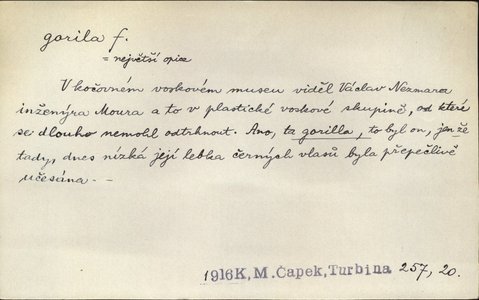 gorila f.
= největší opice
V kočovném voskovém museu viděl Václav Nezmara
inženýra Moura a to v plastické voskové skupině, od které
se dlouho nemohl odtrhnout. Ano, ta gorilla, to byl on, jenže
tady, dnes nízká její lebka černých vlasů byla přepečlivě
učesána. —
1916K, M. Čapek, Turbina 257, 20.